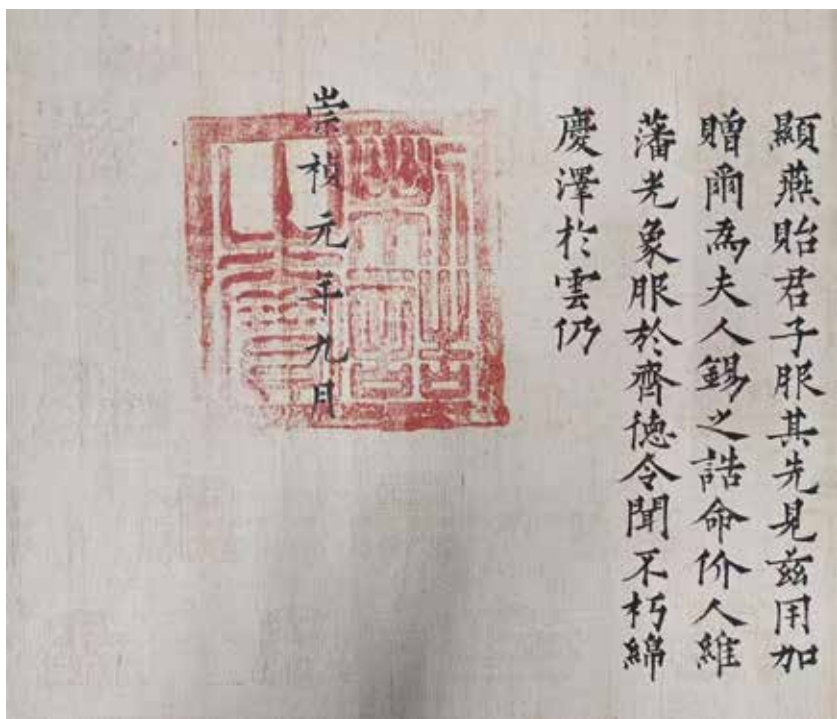 顯燕貽君子服其先見兹用加
贈爾為夫人錫之誥命价人維
藩光象服於齊德令聞不朽綿
慶澤於雲仍
崇禎元年九月